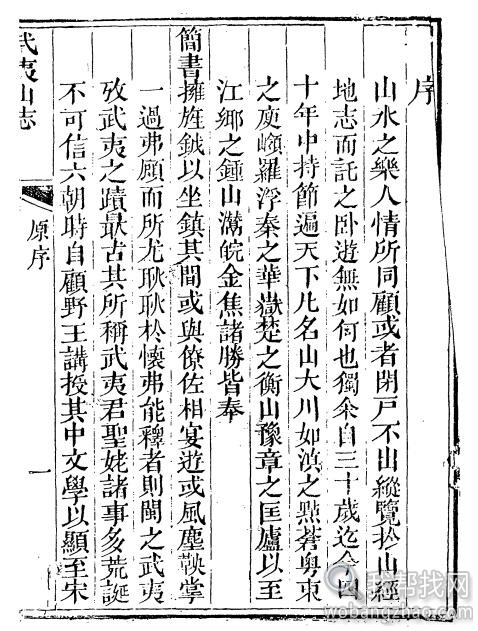 序
山水之樂人情所同顧或者閉戸不出縱覽於山經
地志而託之卧遊無如何也獨余自三十歲迄今四
十年中持節遍天下凡名山大川如滇之㸃蒼粤東
之庾嶺羅浮秦之華嶽楚之衡山豫章之匡廬以至
江鄉之鍾山灊皖金焦諸勝皆奉
簡書擁旌鉞以坐鎮其間或與僚佐相宴遊或風塵鞅掌
一過弗顧而所尤耿耿於懷弗能釋者則閩之武夷
攷武夷之蹟最古其所稱武夷君聖姥諸事多荒誕
不可信六朝時自顧野王講授其中文學以顯至宋
武夷山志
原序
一
我帮找网
wobangzhao.com